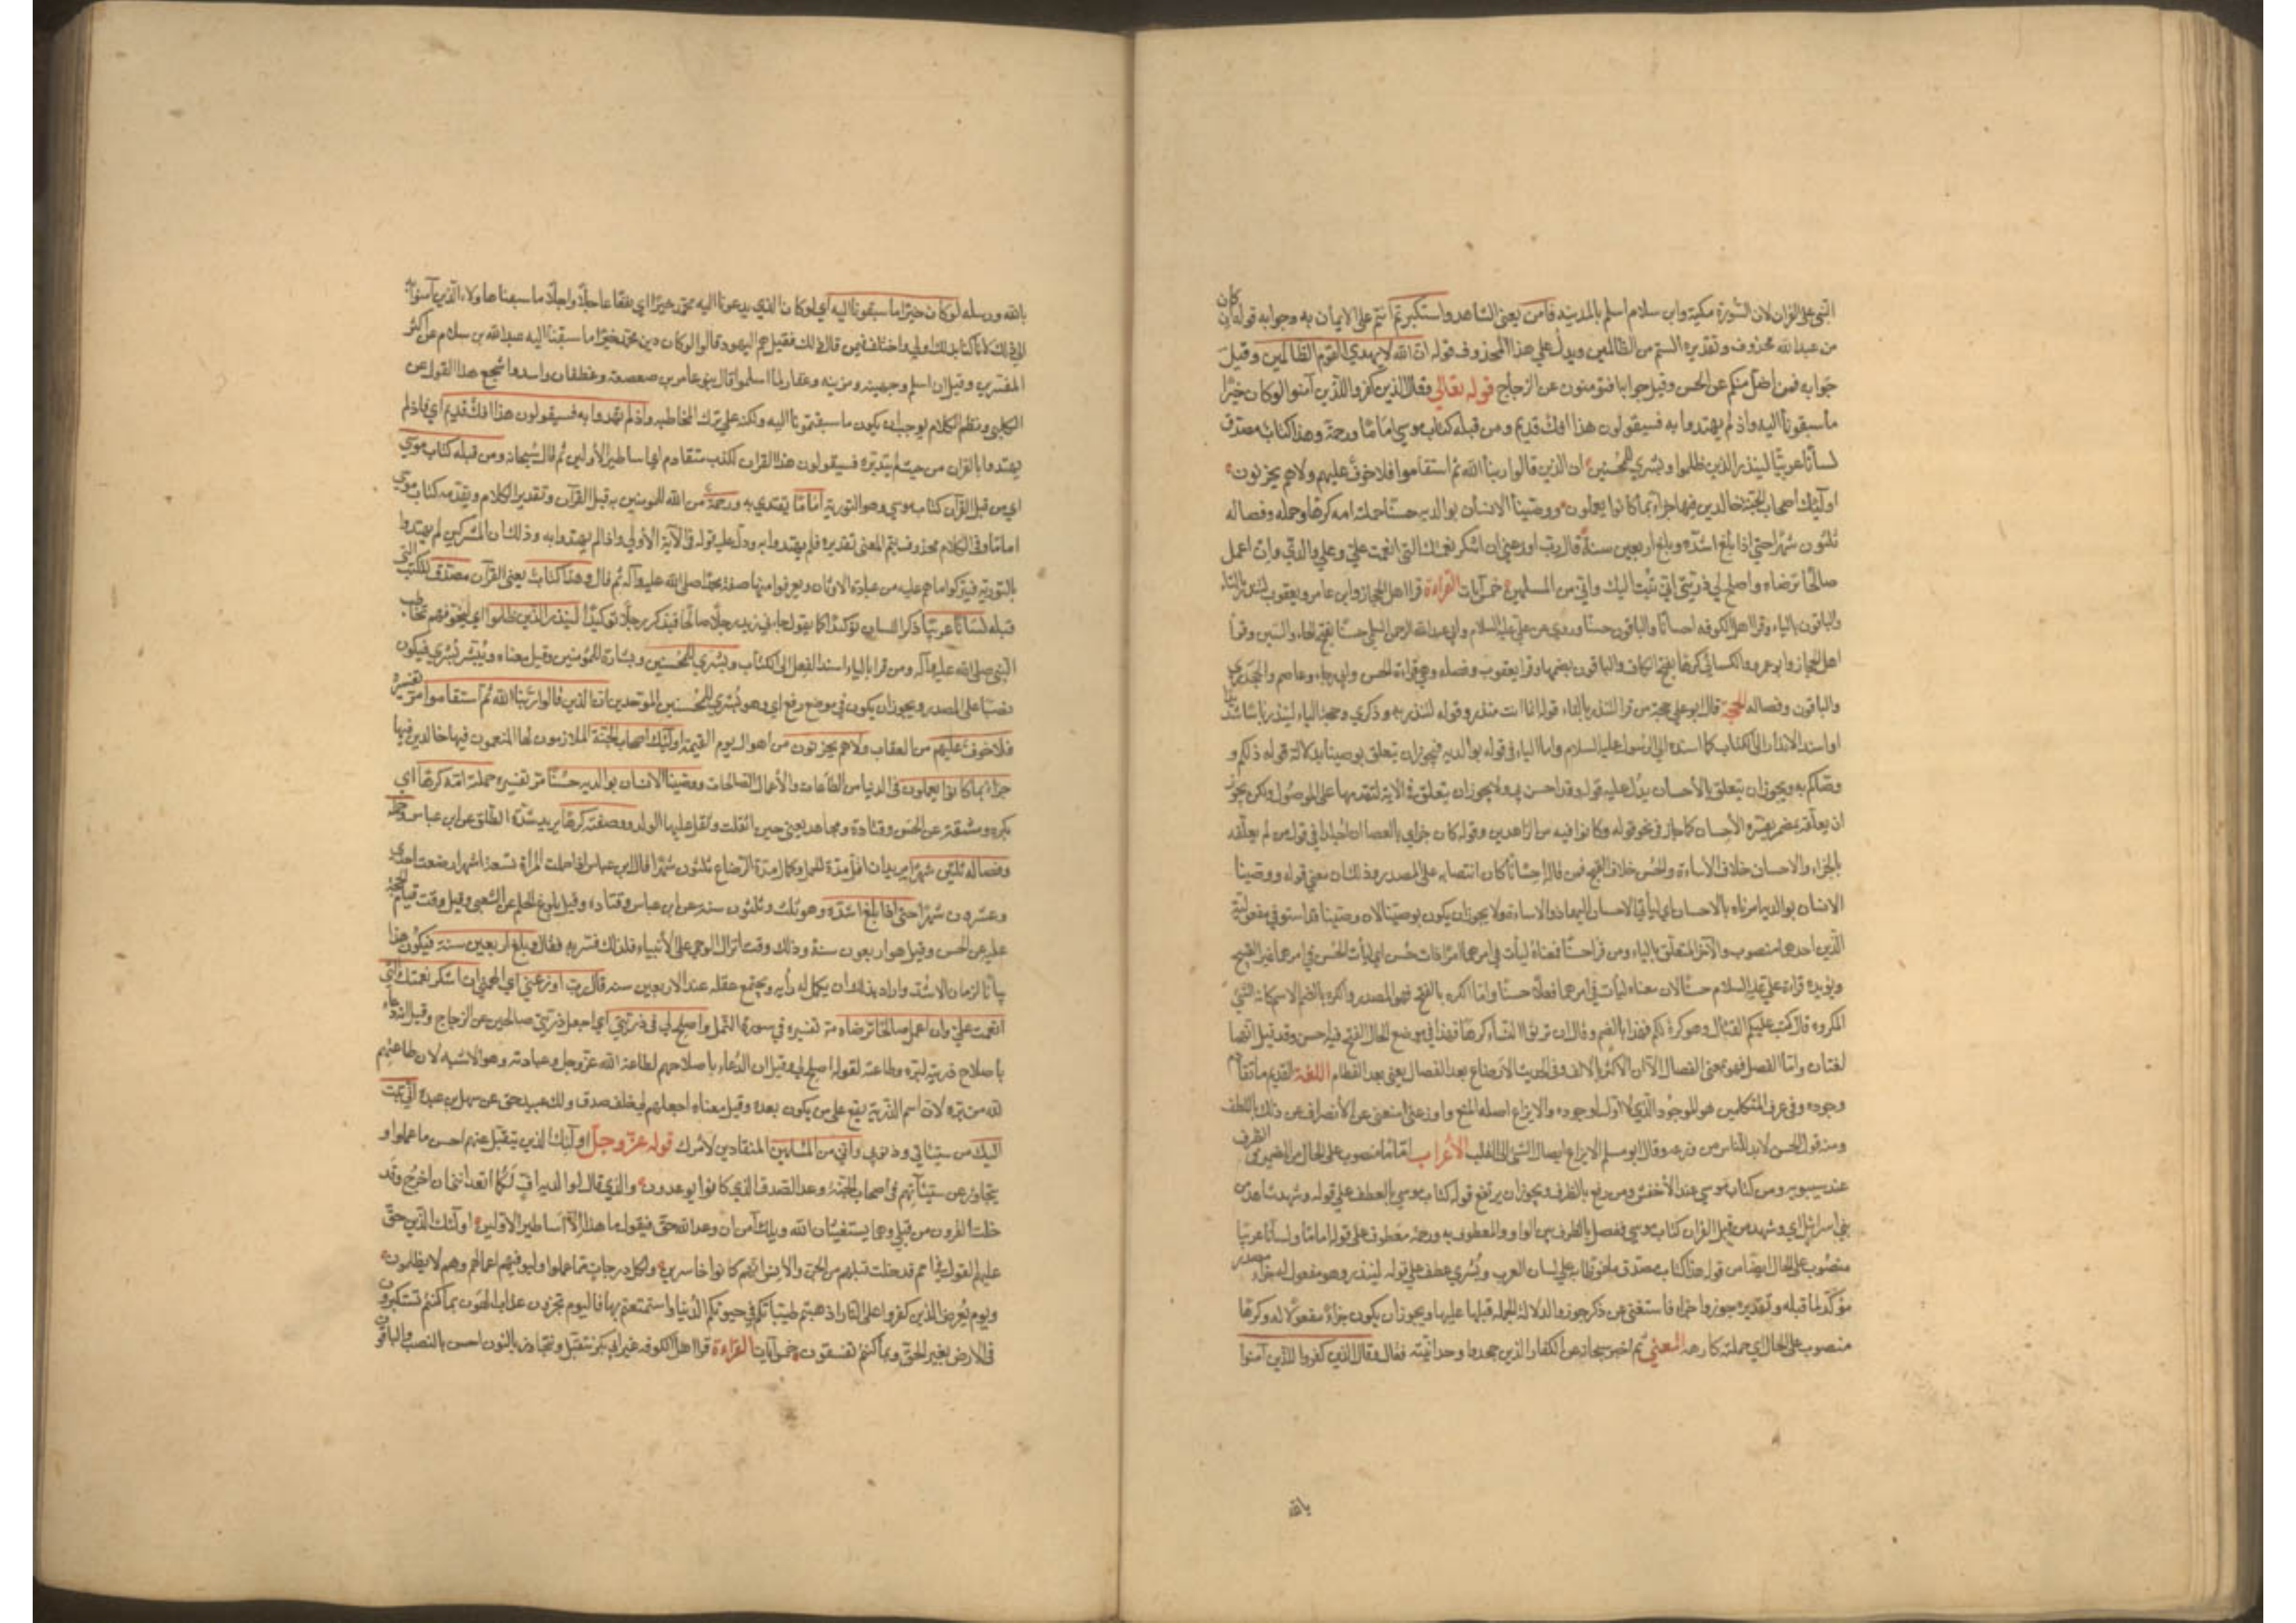 النبي على القران لان السورة مكية وابن سلام اسلم بالمدينة فآمن يعني الشاهد واستكبرتم انتم على الايمان به وجوابه قوله ان كان
من عند الله محذوف وتقديره الستم من الظالمين ويدل على هذا المحذوف قوله ان الله لا يهدي القوم الظالمين وقيل
جوابه فمن اضل منكم عن الحسن وقيل جوابه افتؤمنون عن الزجاج قوله تعالى وقال الذين كفروا للذين آمنوا لو كان خيرا
ما سبقونا اليه واذ لم يهتدوا به فسيقولون هذا افك قديم ومن قبله كتاب موسى اماما ورحمة وهذا كتاب مصدق
لسانا عربيا لينذر الذين ظلموا وبشرى للمحسنين ان الذين قالوا ربنا الله ثم استقاموا فلا خوف عليهم ولا هم يحزنون
اولئك اصحاب الجنة خالدين فيها جزاء بما كانوا يعملون ووصينا الانسان بوالديه حسنا حملته امه كرها وحمله وفصاله
ثلثون شهرا حتى اذا بلغ اشده وبلغ اربعين سنة قال رب اوزعني ان اشكر نعمتك التي انعمت علي وعلى والدي وان اعمل
صالحا ترضاه واصلح لي في ذريتي اني تبت اليك واني من المسلمين خمس آيات القراءة قرا اهل الحجاز وابن عامر ويعقوب لتنذر بالتاء
والباقون بالياء وقرا اهل الكوفه احسانا والباقون حسنا وروي عن علي عليه السلام وابي عبد الرحمن السلمي حسنا بفتح الحاء والسين وقرأ
اهل الحجاز وابو عمرو والكسائي كرها بفتح الكاف والباقون بضمها وقرا يعقوب وفصله وهي قراءة الحسن وابي رجاء وعاصم والجحدري
والباقون وفصاله الحجة قال ابو علي حجة من قرا لتنذر بالتاء قوله انما انت منذر وقوله لتنذر به وذكرى وحجة الياء لينذر باسا شديدا
او اسند الانذار الى الكتاب كما اسنده الى الرسول عليه السلام واما الباء في قوله بوالديه فيجوز ان يتعلق بوصينا بدلالة قوله ذلكم و
وصاكم به ويجوز ان يتعلق بالاحسان يدل عليه قوله وقد احسن بي ولا يجوز ان يتعلق في الآية لتقدمها على الموصول ولكن يجوز
ان يعلقه بمضمر يفسره الاحسان كما جاز في نحو قوله وكانوا فيه من الزاهدين وقوله كان جزائي بالعصا ان اجلدا في قول من لم يعلقه
بالجزاء والاحسان خلاف الاساءة والحسن خلاف القبح فمن قال احسانا كان انتصابه على المصدر وذلك ان معنى قوله ووصينا
الانسان بوالديه امرناه بالاحسان اي ليأتي الاحسان اليهما دون الاساءة ولا يجوز ان يكون بوصينا لان وصينا قد استوفى مفعوليه
الذين احدهما منصوب والآخر المتعلق بالباء ومن قرا حسنا فمعناه ليأت في امرهما امرا ذا حسن اي ليأت الحسن في امرهما غير القبيح
ويؤيده قراءة علي عليه السلام حسنا لان معناه ليأت في امرهما فعلا حسنا واما الكره بالفتح فهو المصدر والكره بالضم الاسم كانه الشيء
المكروه قال كتب عليكم القتال وهو كره لكم فهذا بالضم وقال ان ترثوا النساء كرها فهذا في موضع الحال الفتح فيه احسن وقد قيل انهما
لغتان واما الفصل فهو بمعنى الفصال الا ان الاكثر بالالف وفي الحديث لا رضاع بعد الفصال يعني بعد الفطام اللغة القديم ما تقادم
وجوده وفي عرف المتكلمين هو الموجود الذي لا اول لوجوده والايزاع اصله المنع واوزعني امنعني عن الانصراف عن ذلك باللطف
ومنه قول الحسن لابد للناس من وزعة وقال ابو مسلم الايزاع ايصال الشيء الى القلب الاعراب اماما منصوب على الحال من الضمير في الظرف
عند سيبويه ومن كتاب موسى عند الاخفش ومن رفع بالظرف ويجوز ان يرتفع قوله كتاب موسى بالعطف على قوله وشهد شاهد من
بني اسرائيل اي وشهد من قبل القران كتاب موسى ففصل بالظرف بين الواو والمعطوف به ورحمة معطوف على قوله اماما ولسانا عربيا
منصوب على الحال ايضا من قوله هذا كتاب مصدق ملفوظا به على لسان العرب وبشرى عطف على قوله لينذر وهو مفعول له جزاء مصدر
مؤكد لما قبله وتقديره جوزوا جزاء فاستغنى عن ذكر جوزوا لدلالة الجملة قبلها عليها ويجوز ان يكون جزاء مفعولا له وكرها
منصوب على الحال اي حملته كارهة المعنى ثم اخبر سبحانه عن الكفار الذين جحدوا وحدانيته فقال وقال الذين كفروا للذين آمنوا
بالله
بالله ورسله لو كان خيرا ما سبقونا اليه اي لو كان الذي يدعونا اليه محمد خيرا اي نفعا عاجلا وآجلا ما سبقنا هاولاء الذين آمنوا به
الى ذلك لانا كنا بذلك اولى واختلف فيمن قال ذلك فقيل هم اليهود قالوا لو كان دين محمد خيرا ما سبقنا اليه عبد الله بن سلام عن اكثر
المفسرين وقيل ان اسلم وجهينه ومزينه وغفار لما اسلموا قال بنو عامر بن صعصعة وغطفان واسد واشجع هذا القول عن
الكلبي ونظم الكلام يوجب ان يكون ما سبقتمونا اليه ولكنه على ترك المخاطبه واذ لم يهتدوا به فسيقولون هذا افك قديم اي فاذ لم
يهتدوا بالقران من حيث لم يتدبره فسيقولون هذا القران كذب متقادم اي اساطير الاولين ثم قال سبحانه ومن قبله كتاب موسى
اي من قبل القرآن كتاب موسى وهو التورية اماما يقتدى به ورحمة من الله للمومنين به قبل القرآن وتقدير الكلام وتقدمه كتاب موسى
اماما وفي الكلام محذوف يتم المعنى تقديره فلم يهتدوا به ودل عليه قوله في الآية الاولى واذ لم يهتدوا به وذلك ان المشركين لم يهتدوا
بالتورية فيتركوا ما هم عليه من عبادة الاوثان ويعرفوا منها صفة محمد صلى الله عليه وآله ثم قال وهذا كتاب يعني القرآن مصدق للكتب التي
قبله لسانا عربيا ذكر اللسان توكيدا كما يقول جاءني زيد رجلا صالحا فيذكر رجلا توكيدا لينذر الذين ظلموا اي لتخوفهم تخاطب
النبي صلى الله عليه وآله ومن قرا بالياء اسند الفعل الى الكتاب وبشرى للمحسنين وبشارة للمؤمنين وقيل معناه ويبشر بشرى فيكون
نصبا على المصدر ويجوز ان يكون في موضع رفع اي وهو بشرى للمحسنين الموحدين ان الذين قالوا ربنا الله ثم استقاموا مر تفسيره
فلا خوف عليهم من العقاب ولا هم يحزنون من اهوال يوم القيمة اولئك اصحاب الجنة الملازمون لها المنعمون فيها خالدين فيها
جزاء بما كانوا يعملون في الدنيا من الطاعات والاعمال الصالحات ووصينا الانسان بوالديه حسنا مر تفسيره حملته امه كرها اي
بكره ومشقة عن الحسن وقتادة ومجاهد يعني حين اثقلت وثقل عليها الولد ووضعته كرها يريد شدة الطلق عن ابن عباس وحمله
وفصاله ثلثون شهرا يريد ان اقل مدة للحمل وكمال مدة الرضاع ثلثون شهرا قال ابن عباس اذا حملت المرأة تسعة اشهر ارضعت احدى
وعشرون شهرا حتى اذا بلغ اشده وهو ثلث وثلثون سنة عن ابن عباس وقتاده وقيل بلوغ الحلم عن الشعبي وقيل وقت قيام الحجة
عليه عن الحسن وقيل هو اربعون سنة وذلك وقت انزال الوحي على الانبياء فلذلك فسر به فقال وبلغ اربعين سنة فيكون هذا
بيانا لزمان الاشد واراد بذلك ان يكمل له رأيه ويجتمع عقله عند الاربعين سنه قال رب اوزعني اي الهمني ان اشكر نعمتك التي
انعمت علي وان اعمل صالحا ترضاه مر تفسيره في سورة النمل واصلح لي في ذريتي اي اجعل ذريتي صالحين عن الزجاج وقيل الدعاء
باصلاح ذريته لبره وطاعته لقوله اصلح لي وقيل ان الدعاء باصلاحهم لطاعة الله عز وجل وعبادته وهو الاشبه لان طاعتهم
لله من بره لان اسم الذرية يقع على من يكون بعده وقيل معناه اجعلهم لي خلف صدق ولك عبيد حق عن سهل بن عبد الله اني تبت
اليك من سيئاتي وذنوبي واني من المسلمين المنقادين لامرك قوله عز وجل اولئك الذين يتقبل عنهم احسن ما عملوا و
يتجاوز عن سيئاتهم في اصحاب الجنة وعد الصدق الذي كانوا يوعدون والذي قال لوالديه اف لكما اتعدانني ان اخرج وقد
خلت القرون من قبلي وهما يستغيثان الله ويلك آمن ان وعد الله حق فيقول ما هذا الا اساطير الاولين اولئك الذين حق
عليهم القول في امم قد خلت قبلهم من الجن والانس انهم كانوا خاسرين ولكل درجات مما عملوا وليوفيهم اعمالهم وهم لا يظلمون
ويوم يعرض الذين كفروا على النار اذهبتم طيباتكم في حيوتكم الدنيا واستمتعتم بها فاليوم تجزون عذاب الهون بما كنتم تستكبرون
في الارض بغير الحق وبما كنتم تفسقون خمس آيات القراءة قرا اهل الكوفه غير ابي بكر نتقبل ونتجاوز بالنون احسن بالنصب والباقون